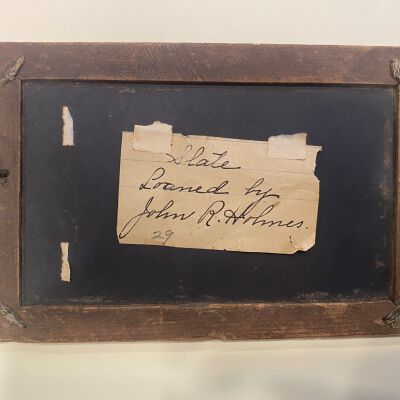 Slate
Loaned by
John R. Holmes.
29